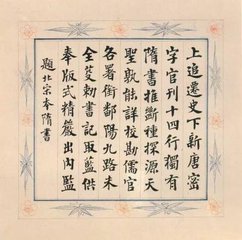 上追遷史下新唐密
字官刊十四行獨有
隋書推斷種探源天
聖敕能詳校勘儒官
各署銜鄱陽九路未
全芟勅書記取藍供
奉版式精嚴出內監
題北宋本隋書